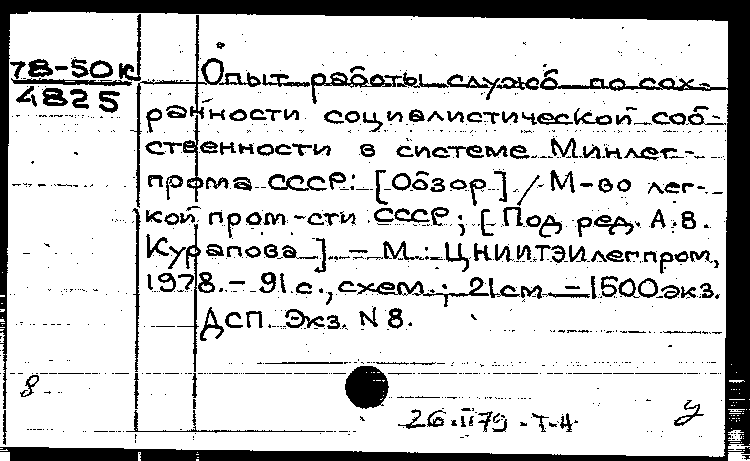 78-50к
4825
Опыт работы служб по сох-
ранности социалистической соб-
ственности в системе Минлег-
прома СССР: [Обзор] / М-во лег-
кой пром-сти СССР; [Под ред. А.В.
Курапова] - М.: ЦНИИТЭИлегпром,
1978. - 91 с., схем.; 21 см - 1500 экз.
ДСП. Экз. N 8.
8
26.II79 - Т-Н
У